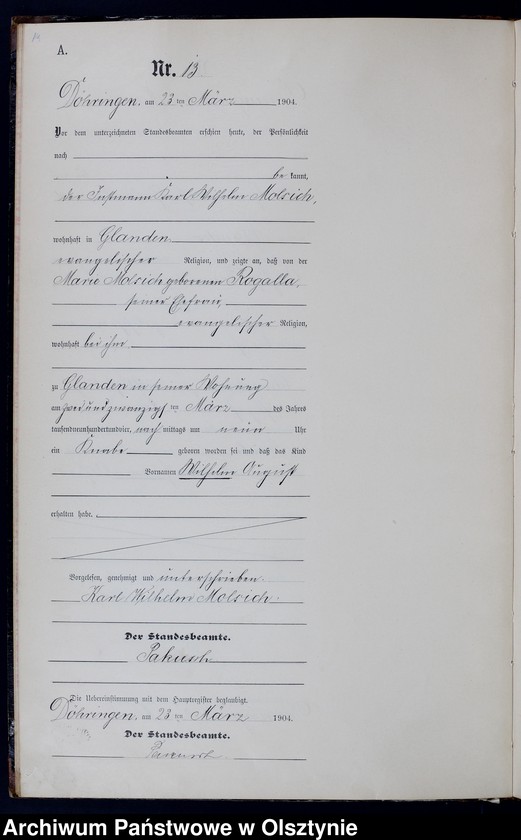 A.
Nr. 13
Döhringen, am 23 ten März 1904.
Vor dem unterzeichneten Standesbeamten erschien heute, der Persönlichkeit
nach
be kannt,
der Instmann Karl Wilhelm Molsich,
wohnhaft in Glanden
evangelischer Religion, und zeigte an, daß von der
Marie Molsich geborenen Rogalla,
seiner Ehefrau,
evangelischer Religion,
wohnhaft bei ihm
zu Glanden in seiner Wohnung
am zweiundzwanzigsten März des Jahres
tausendneunhundertundvier, nach mittags um neun Uhr
ein Knabe geboren worden sei und daß das Kind
Vornamen Wilhelm August
erhalten habe.
Vorgelesen, genehmigt und unterschrieben.
Karl Wilhelm Molsich.
Der Standesbeamte.
Pakusch
Die Uebereinstimmung mit dem Hauptregister beglaubigt.
Döhringen, am 23 ten März 1904.
Der Standesbeamte.
Pakusch
Archiwum Państwowe w Olsztynie